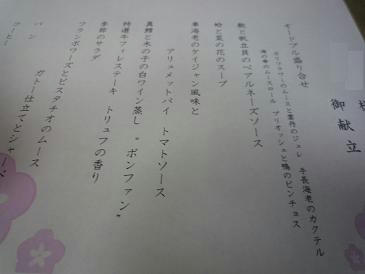 様
御献立
オードブル盛り合せ
カリフラワーのムースと雲丹のジュレ 手長海老のカクテル
海の幸のムースロール ブリオッシュと鴨のピンチョス
鮑と帆立貝のベアルネーズソース
蛤と菜の花のスープ
車海老のケイジャン風味と
アリュメットパイ トマトソース
真鯛と木の子の白ワイン蒸し "ボンファン"
特選牛フィレステーキ トリュフの香り
季節のサラダ
フランボワーズとピスタチオのムース
ガトー仕立てとシャーベ
パン
コーヒー